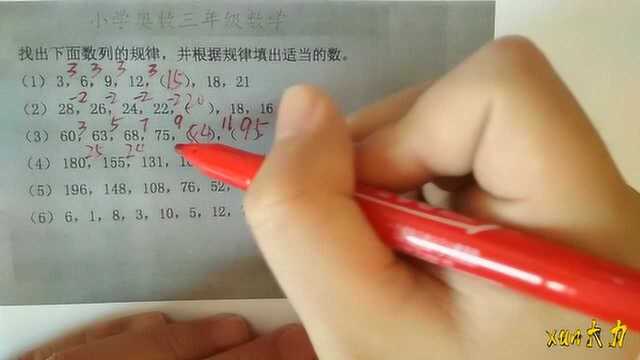 小学奥数三年级数学
找出下面数列的规律，并根据规律填出适当的数。
3 3 3 3
(1) 3，6，9，12，(15)，18，21
-2 -2 -2 -2 20
(2) 28，26，24，22，( )，18，16
3 5 7 9 11 95
(3) 60，63，68，75，(84)，(
25 24
(4) 180，155，131，
(5) 196，148，108，76，52，
(6) 6，1，8，3，10，5，12，
xun大力